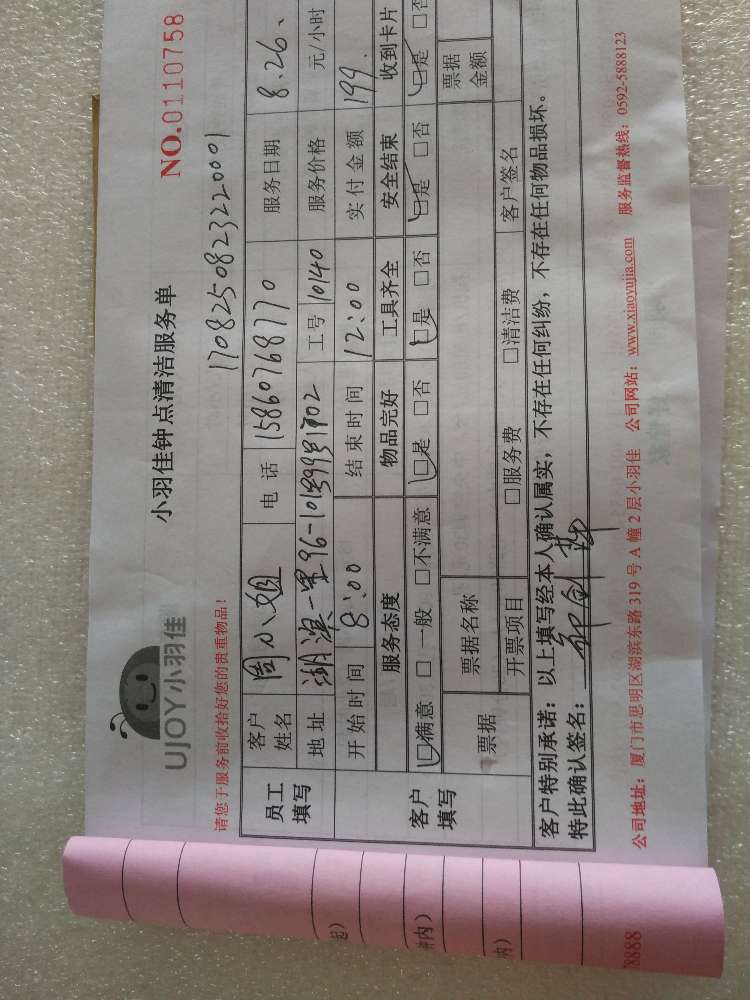 UJOY小羽佳
小羽佳钟点清洁服务单
NO.0110758
请您于服务前收拾好您的贵重物品!
1708250823220001
员工填写
客户姓名 周小姐 电话 15860768770 服务日期 8.26.
地址 湖滨一里96-101 702 工号 10140 服务价格 元/小时
开始时间 8:00 结束时间 12:00 实付金额 199.
客户填写
服务态度 物品完好 工具齐全 安全结束 收到卡片
☑满意 □一般 □不满意 ☑是 □否 ☑是 □否 ☑是 □否 ☑是 □否
票据 票据名称 票据金额
开票项目 □服务费 □清洁费 客户签名
客户特别承诺:以上填写经本人确认属实,不存在任何纠纷,不存在任何物品损坏。
特此确认签名:
公司地址:厦门市思明区湖滨东路319号A幢2层小羽佳 公司网站:www.xiaoyujia.com 服务监督热线:0592-5888123
起)
内)
内)
8888